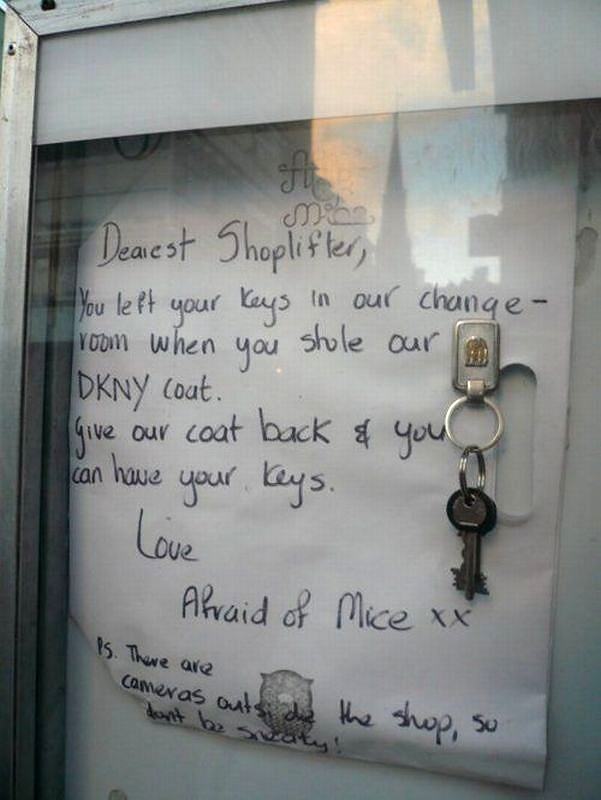 Dearest Shoplifter,
You left your keys in our change-
room when you stole our
DKNY coat.
Give our coat back & you
can have your keys.
Love
Afraid of Mice xx
Ps. There are
cameras outside the shop, so
dont be sneaky!